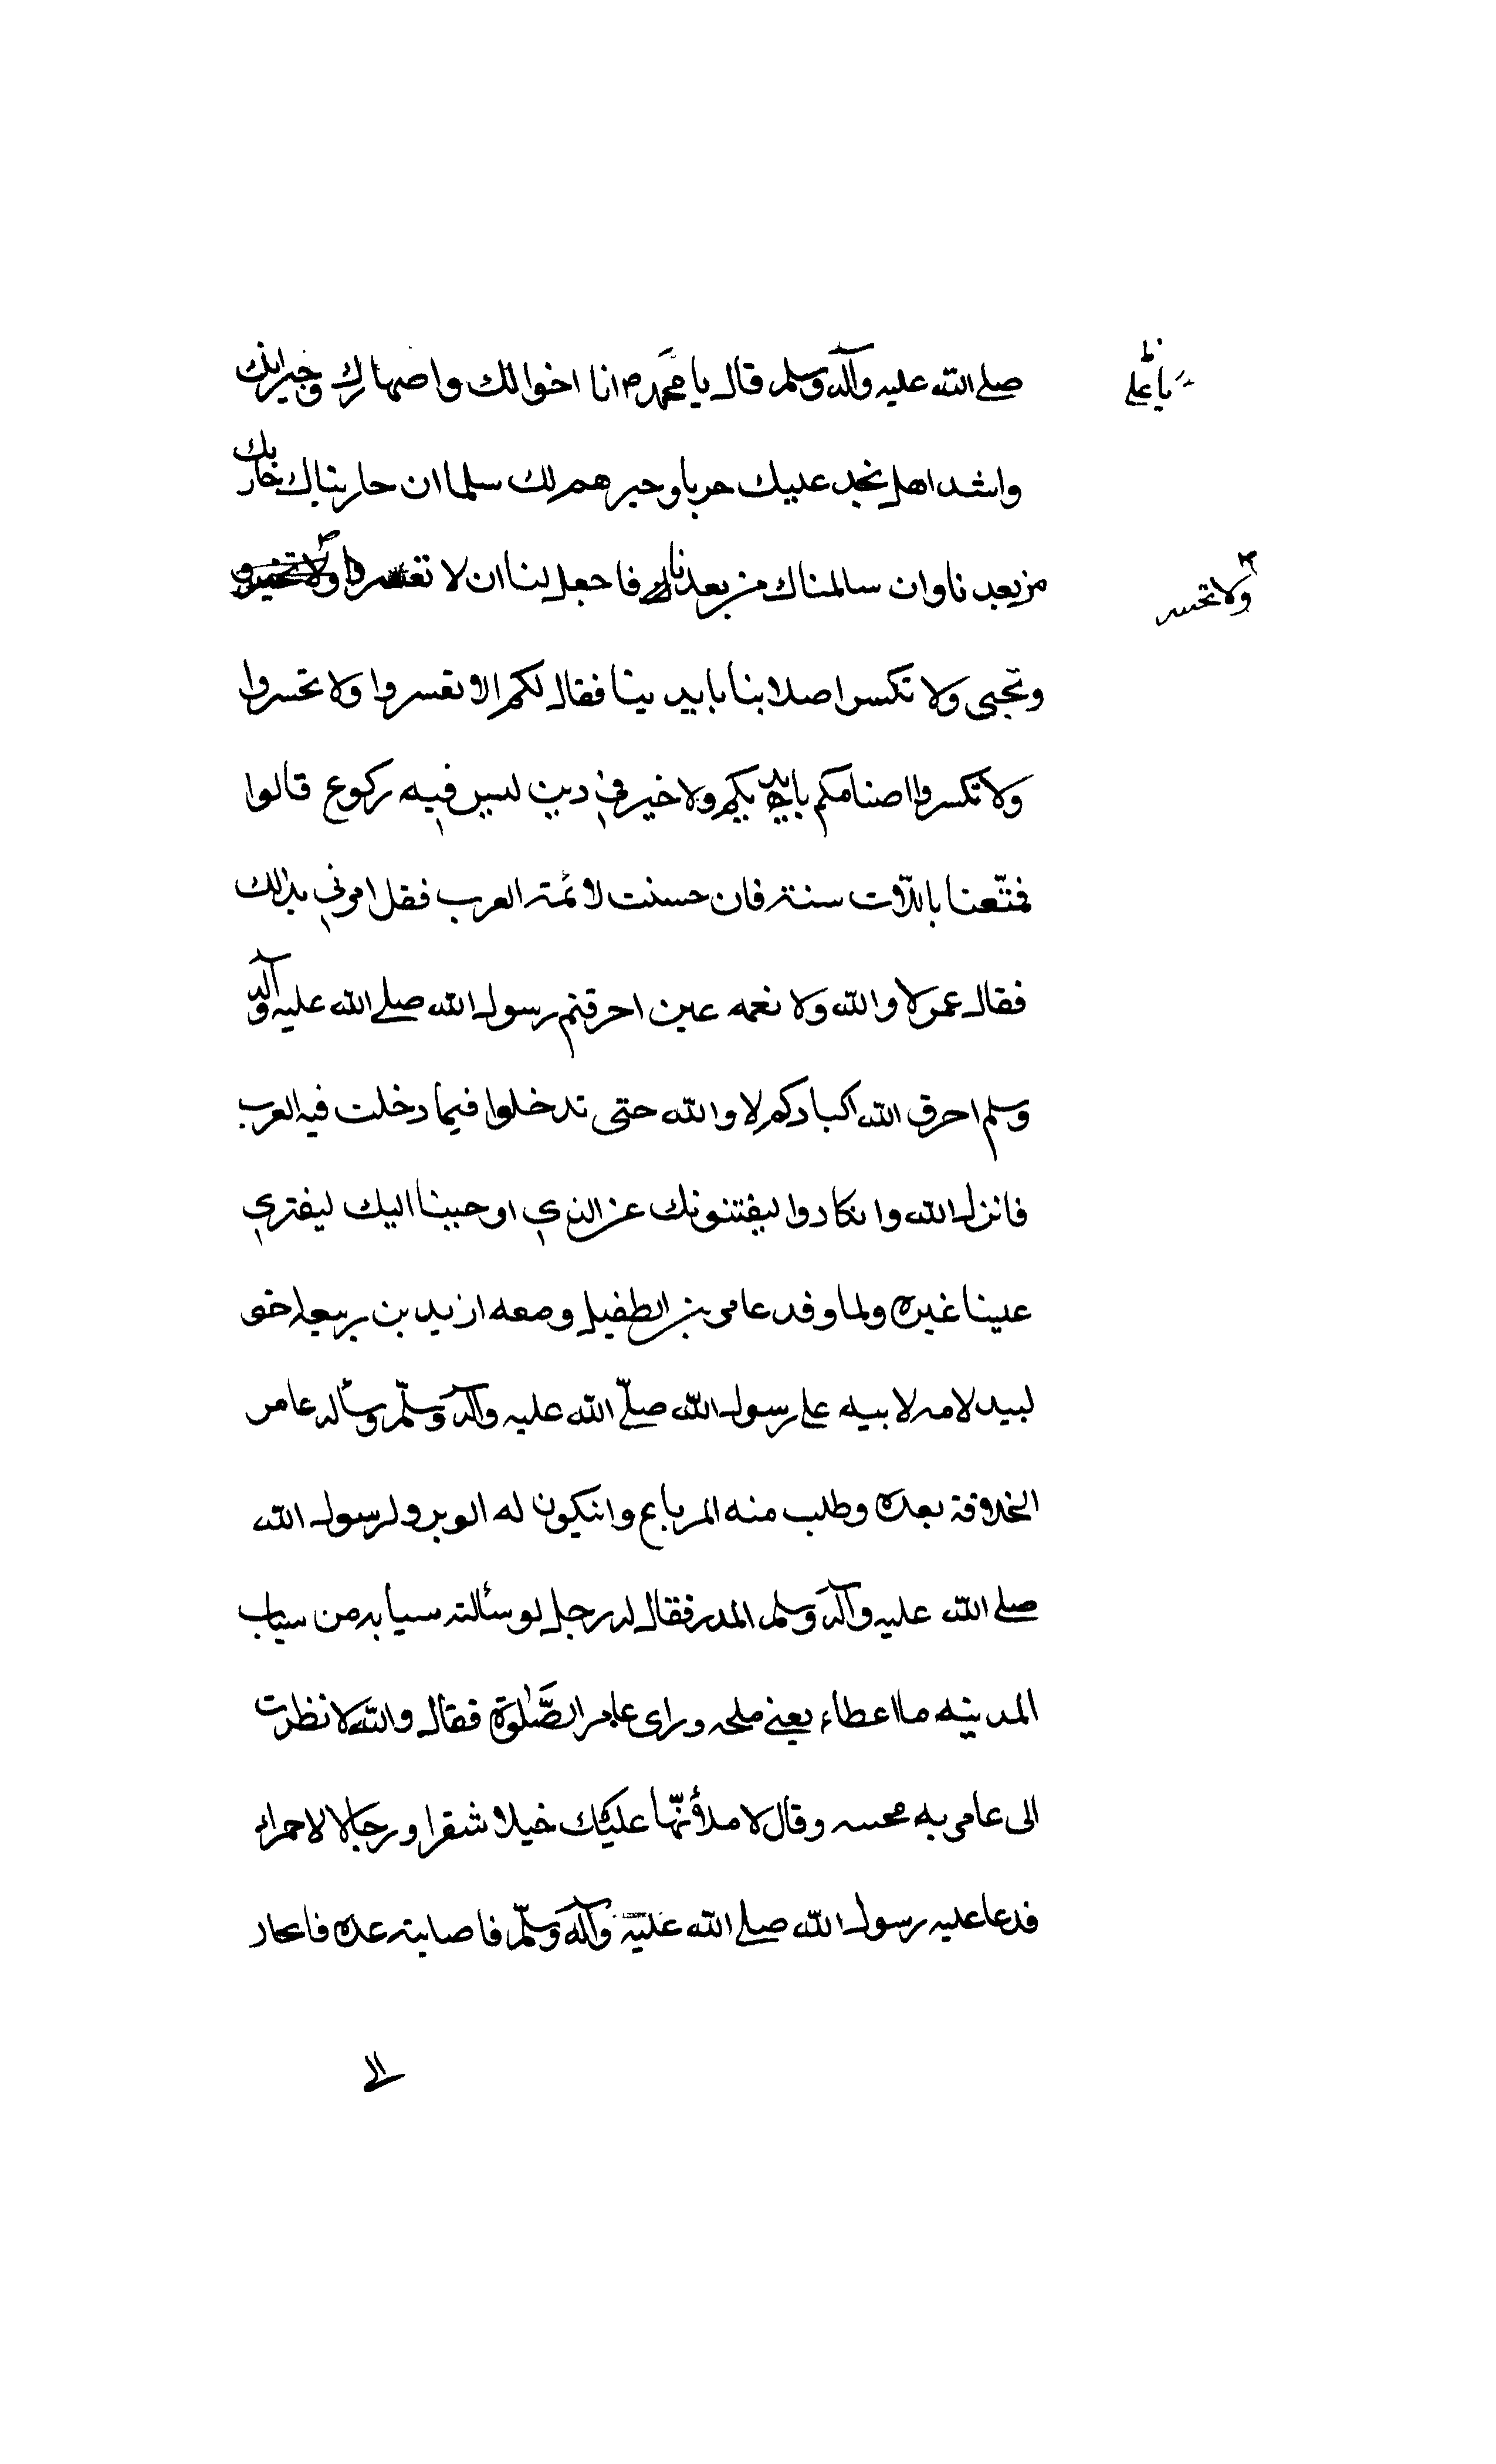 صلى الله عليه وآله وسلم قال يا محمد م انا اخوالك واصهارك وجيرانك
يا على
واشد اهل نجد عليك حربا وخيرهم لك سلما ان حاربناك حاربك
من بعدنا وان سالمناك من بعدنا فاجعل لنا ان لا
ولا تحسر
وتجبى ولا تكسر اصلابنا بايدينا فقال لكم الا تقسروا ولا تحسروا
ولا تكسروا اصنامكم بايديكم ولا خير في دين ليس فيه ركوع قالوا
فمتّعنا باللّات سنة فان حسنت لائمة العرب فقل امرني بذالك
فقال عمر لا والله ولا نعمه عين احرقتم رسول الله صلى الله عليه وآله
وسلم احرق الله اكبادكم لا والله حتى تدخلوا فيما دخلت فيه العرب
فانزل الله وانكادوا ليفتنونك عن الذي اوحينا اليك ليفتري
علينا غيره ولما وفد عامر بن الطفيل ومعه ازيد بن ربيعه اخو
لبيد لامه لابيه على رسول الله صلّى الله عليه وآله وسلّم وسأله عامر
الخلافة بعده وطلب منه المرباع وانيكون له الوبر ولرسول الله
صلى الله عليه وآله وسلم المدر فقال له رجل لو سألته سيابه من سياب
المدينه ما اعطاء يعني ملحه وراى عامر الصَّلوة فقال والله لا نظرت
الى عامريه وقال لاملأنّها عليك خيلا شقرا ورجالا لاحمراء
فدعا عليه رسول الله صلى الله عليه وآله وسلّم فاصابته غده فانحاز
الى